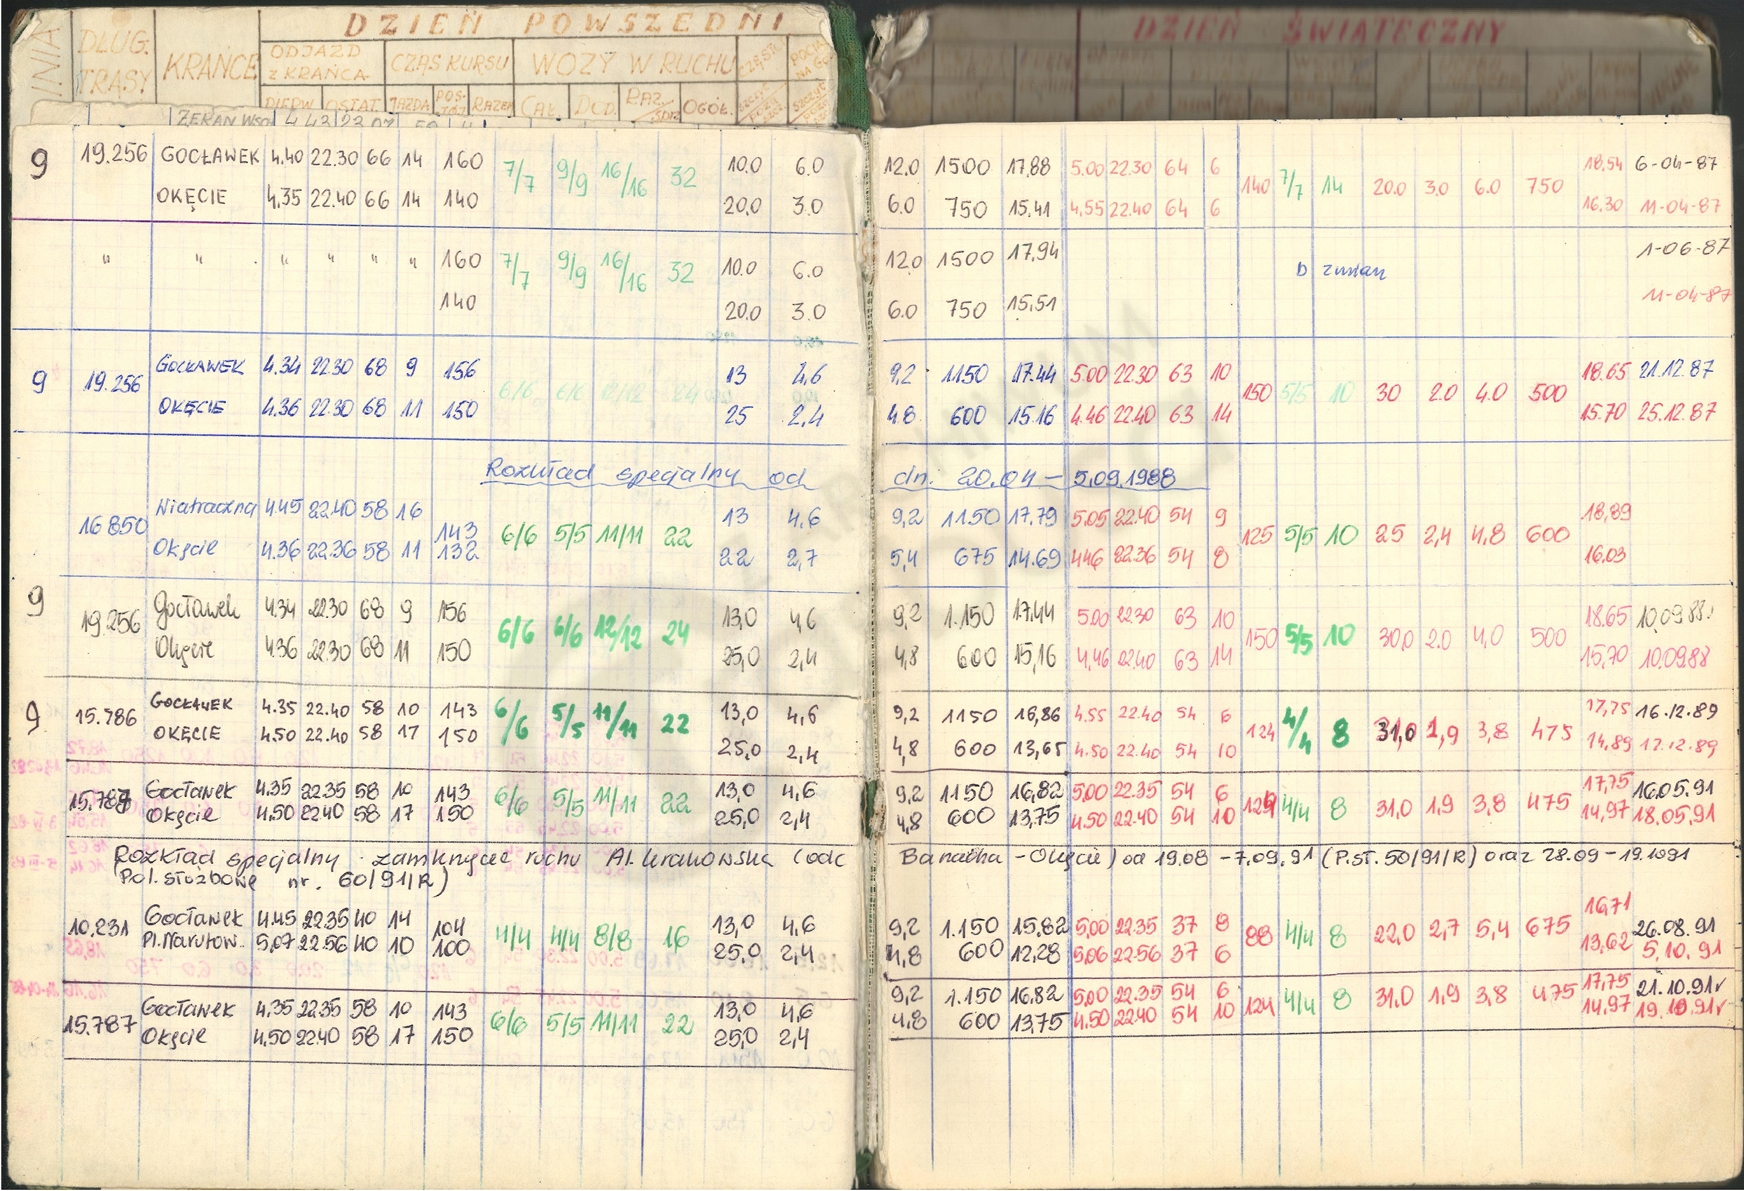 DZIEŃ POWSZEDNI
DZIEŃ ŚWIĄTECZNY
LINIA DŁUG. TRASY KRAŃCE ODJAZD Z KRAŃCA CZAS KURSU WOZY W RUCHU
PIERW. OSTAT. JAZDA POSTÓJ RAZEM CAŁ. DOD. RAZ/ OGÓŁ.
ŻERAŃ WSCH 4.43 23.07 59
9 19.256 GOCŁAWEK 4.40 22.30 66 14 160 7/7 9/9 16/16 32 10.0 6.0 12.0 1500 17.88 5.00 22.30 64 6 140 7/7 14 20.0 3.0 6.0 750 18.54 6-04-87
OKĘCIE 4.35 22.40 66 14 140 20,0 3.0 6.0 750 15.41 4.55 22.40 64 6 16.30 11-04-87
" " " " " " 160 7/7 9/9 16/16 32 10.0 6.0 12.0 1500 17.94 b zmian 1-06-87
140 20.0 3.0 6.0 750 15.51 11-04-87
9 19.256 GOCŁAWEK 4.34 22.30 68 9 156 6/6 6/6 12/12 24 13 4,6 9,2 1150 17.44 5.00 22.30 63 10 150 5/5 10 30 2.0 4.0 500 18.65 21.12.87
OKĘCIE 4.36 22.30 68 11 150 25 2,4 4.8 600 15.16 4.46 22.40 63 14 15.70 25.12.87
Rozkład specjalny od dn. 20.04 – 5.09.1988
16 850 Wiatraczna 4.45 22.40 58 16 143 6/6 5/5 11/11 22 13 4,6 9,2 1150 17.79 5.05 22.40 54 9 125 5/5 10 25 2,4 4,8 600 18,89
Okęcie 4.36 22.36 58 11 132 22 2,7 5,4 675 14.69 4.46 22.36 54 8 16.03
9 19.256 Gocławek 4.34 22.30 68 9 156 6/6 6/6 12/12 24 13,0 4,6 9,2 1.150 17.44 5.00 22.30 63 10 150 5/5 10 30,0 2.0 4,0 500 18.65 10.09.88
Okęcie 4.36 22.30 68 11 150 25,0 2,4 4,8 600 15,16 4,46 22.40 63 14 15,70 10.09.88
9 15.786 GOCŁAWEK 4.35 22.40 58 10 143 6/6 5/5 11/11 22 13,0 4,6 9,2 1150 16,86 4.55 22.40 54 6 124 4/4 8 31,0 1,9 3,8 475 17,75 16.12.89
OKĘCIE 4.50 22.40 58 17 150 25,0 2,4 4,8 600 13,65 4.50 22.40 54 10 14,89 17.12.89
15.787 Gocławek 4.35 22.35 58 10 143 6/6 5/5 11/11 22 13,0 4,6 9,2 1150 16,82 5,00 22.35 54 6 124 4/4 8 31,0 1,9 3,8 475 17,75 16.05.91
Okęcie 4,50 22.40 58 17 150 25,0 2,4 4,8 600 13,75 4.50 22.40 54 10 14,97 18.05.91
Rozkład specjalny - zamknięcie ruchu Al. Krakowska (odc Banacha - Okęcie) od 19.08 - 7.09.91 (P.st. 50/91/R) oraz 28.09 - 19.1091
Pol. służbowe nr. 60/91/R)
10.231 Gocławek 4.45 22.35 40 14 104 4/4 4/4 8/8 16 13,0 4.6 9,2 1.150 15,82 5,00 22.35 37 8 88 4/4 8 22,0 2,7 5,4 675 16,71 26.08.91
Pl. Narutow. 5,07 22.56 40 10 100 25,0 2,4 4,8 600 12,28 5,06 22.56 37 6 13,62 5.10.91
15.787 Gocławek 4,35 22.35 58 10 143 6/6 5/5 11/11 22 13,0 4,6 9,2 1.150 16,82 5,00 22.35 54 6 124 4/4 8 31.0 1,9 3,8 475 17,75 21.10.91r
Okęcie 4,50 22.40 58 17 150 25,0 2,4 4,8 600 13,75 4.50 22.40 54 10 14,97 19.10.91r